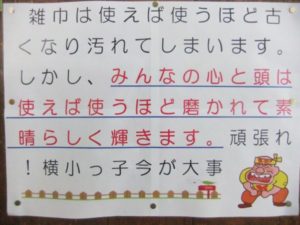 雑巾は使えば使うほど古
くなり汚れてしまいます。
しかし、みんなの心と頭は
使えば使うほど磨かれて素
晴らしく輝きます。頑張れ
！横小っ子今が大事